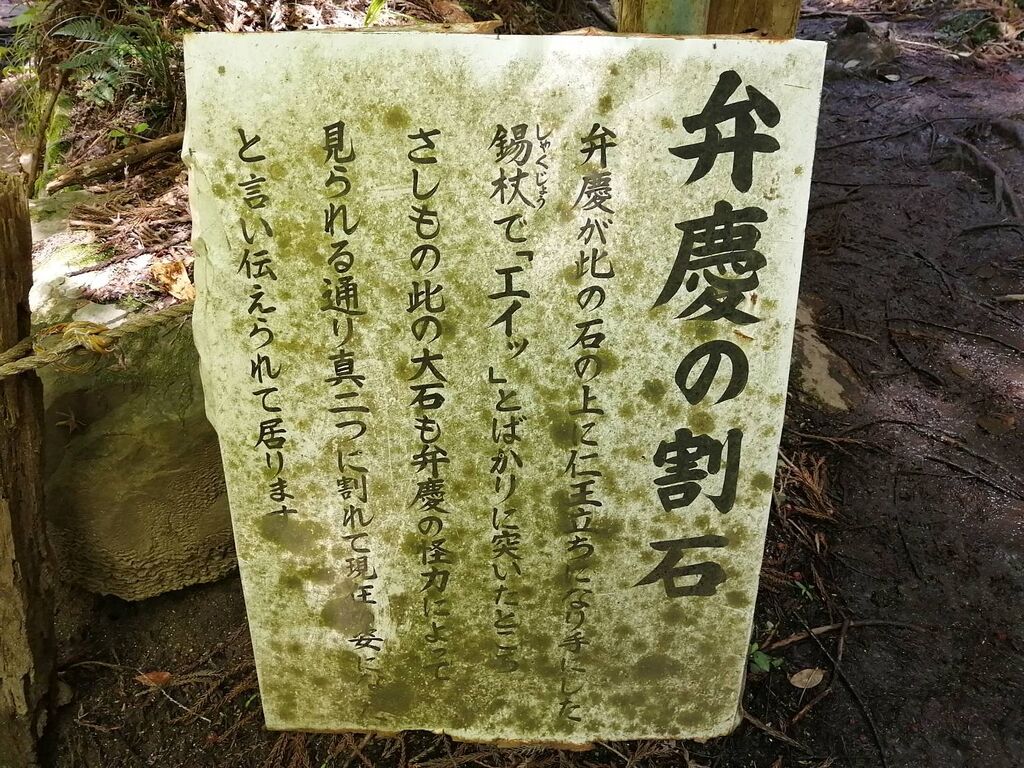 弁慶の割石
弁慶が此の石の上に仁王立ちになり手にした
錫杖で「エイッ」とばかりに突いたところ
しゃくじょう
さしもの此の大石も弁慶の怪力によって
見られる通り真二つに割れて現在 姿に
と言い伝えられて居ります